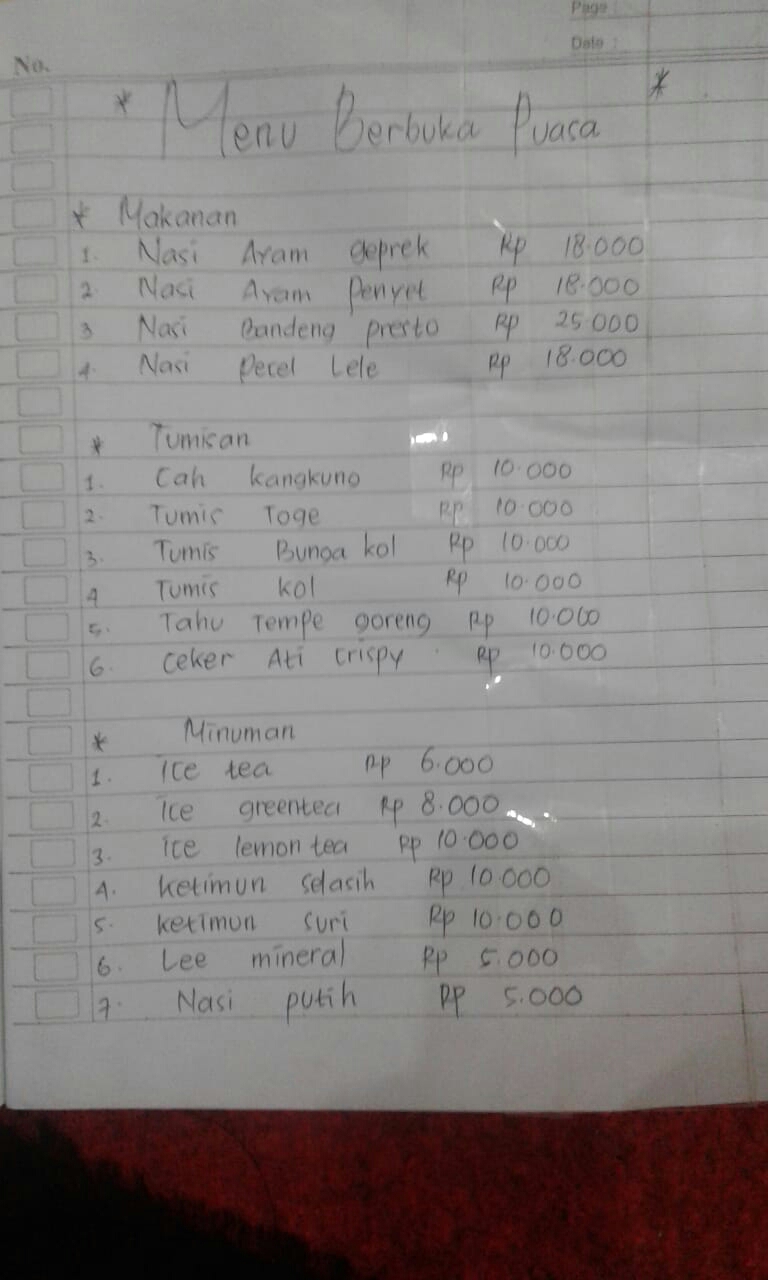 Page :
Date :
No.
* Menu Berbuka Puasa *
* Makanan
1. Nasi Ayam geprek Rp 18.000
2. Nasi Ayam Penyet Rp 18.000
3 Nasi Bandeng presto Rp 25.000
4. Nasi Pecel Lele Rp 18.000
* Tumisan
1. Cah kangkung Rp 10.000
2. Tumis Toge Rp 10.000
3. Tumis Bunga kol Rp 10.000
4 Tumis kol Rp 10.000
5. Tahu Tempe goreng Rp 10.000
6. Ceker Ati Crispy Rp 10.000
* Minuman
1. Ice tea Rp 6.000
2. Ice greentea Rp 8.000
3. Ice lemon tea Rp 10.000
4. Ketimun Selasih Rp 10.000
5. Ketimun Suri Rp 10.000
6. Lee mineral Rp 5.000
7. Nasi putih Rp 5.000